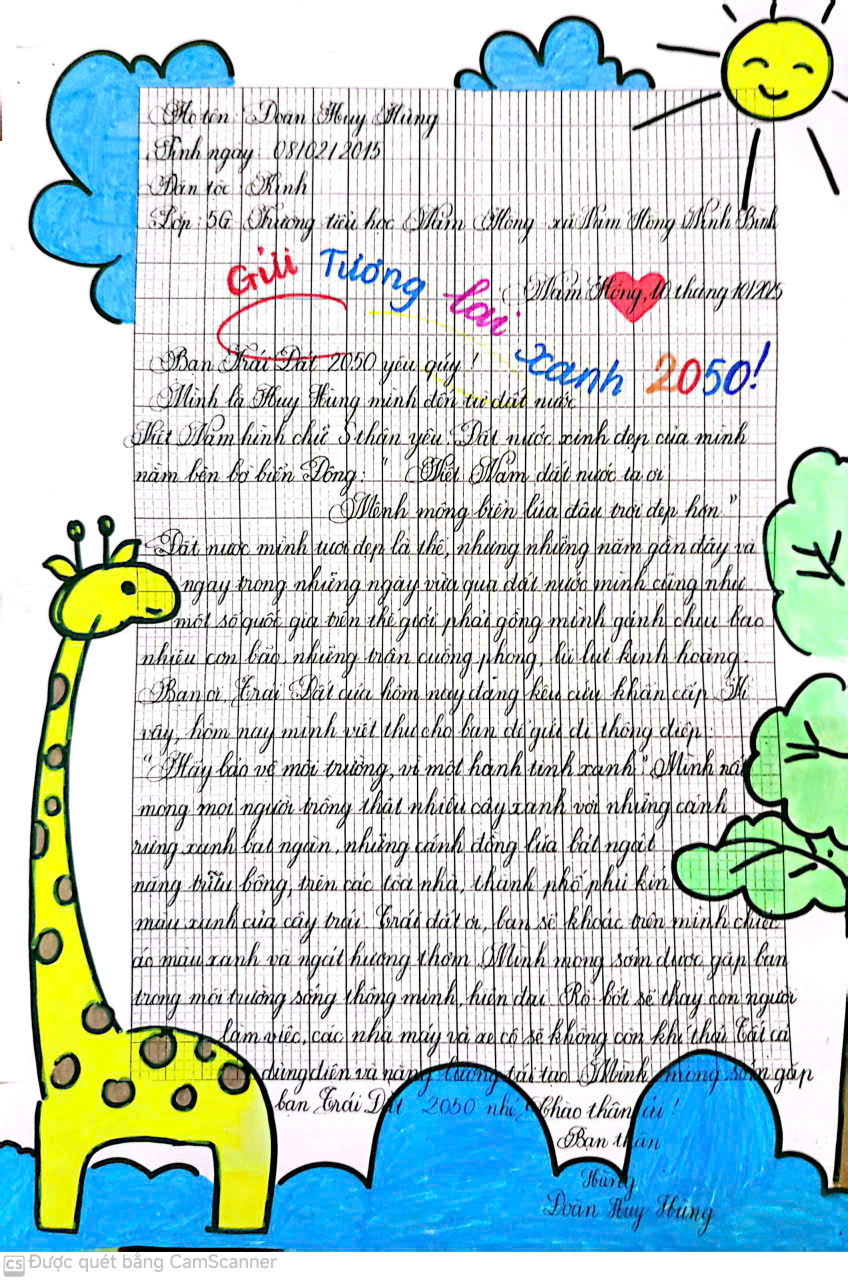 Họ tên: Doãn Huy Hùng
Sinh ngày: 08/02/2015
Dân tộc: Kinh
Lớp: 5G Trường tiểu học Nam Hồng xã Nam Hồng Ninh Bình
Gửi Tương lai xanh 2050!
Nam Hồng, 10 tháng 10/2025
Bạn Trái Đất 2050 yêu quý!
Mình là Huy Hùng mình đến từ đất nước
Việt Nam hình chữ S thân yêu. Đất nước xinh đẹp của mình
nằm bên bờ biển Đông: " Việt Nam đất nước ta ơi
Mênh mông biển lúa đâu trời đẹp hơn"
Đất nước mình tươi đẹp là thế, nhưng những năm gần đây và
ngay trong những ngày vừa qua đất nước mình cũng như
một số quốc gia trên thế giới phải gồng mình gánh chịu bao
nhiêu cơn bão, những trận cuồng phong, lũ lụt kinh hoàng.
Bạn ơi, Trái Đất của hôm nay đang kêu cứu khẩn cấp. Vì
vậy, hôm nay mình viết thư cho bạn để gửi đi thông điệp:
"Hãy bảo vệ môi trường, vì một hành tinh xanh" Mình rất
mong mọi người trồng thật nhiều cây xanh với những cánh
rừng xanh bạt ngàn, những cánh đồng lúa bát ngát
nặng trĩu bông, trên các tòa nhà, thành phố phủ kín
màu xanh của cây trái. Trái đất ơi, bạn sẽ khoác trên mình chiếc
áo màu xanh và ngát hương thơm. Mình mong sớm được gặp bạn
trong môi trường sống thông minh, hiện đại. Rô bốt sẽ thay con người
làm việc, các nhà máy và xe cộ sẽ không còn khí thải. Tất cả
dùng điện và năng lượng tái tạo. Mình mong sớm gặp
bạn Trái Đất 2050 nhé! Chào thân ái!
Bạn thân
Hùng
Doãn Huy Hùng
CS Được quét bằng CamScanner